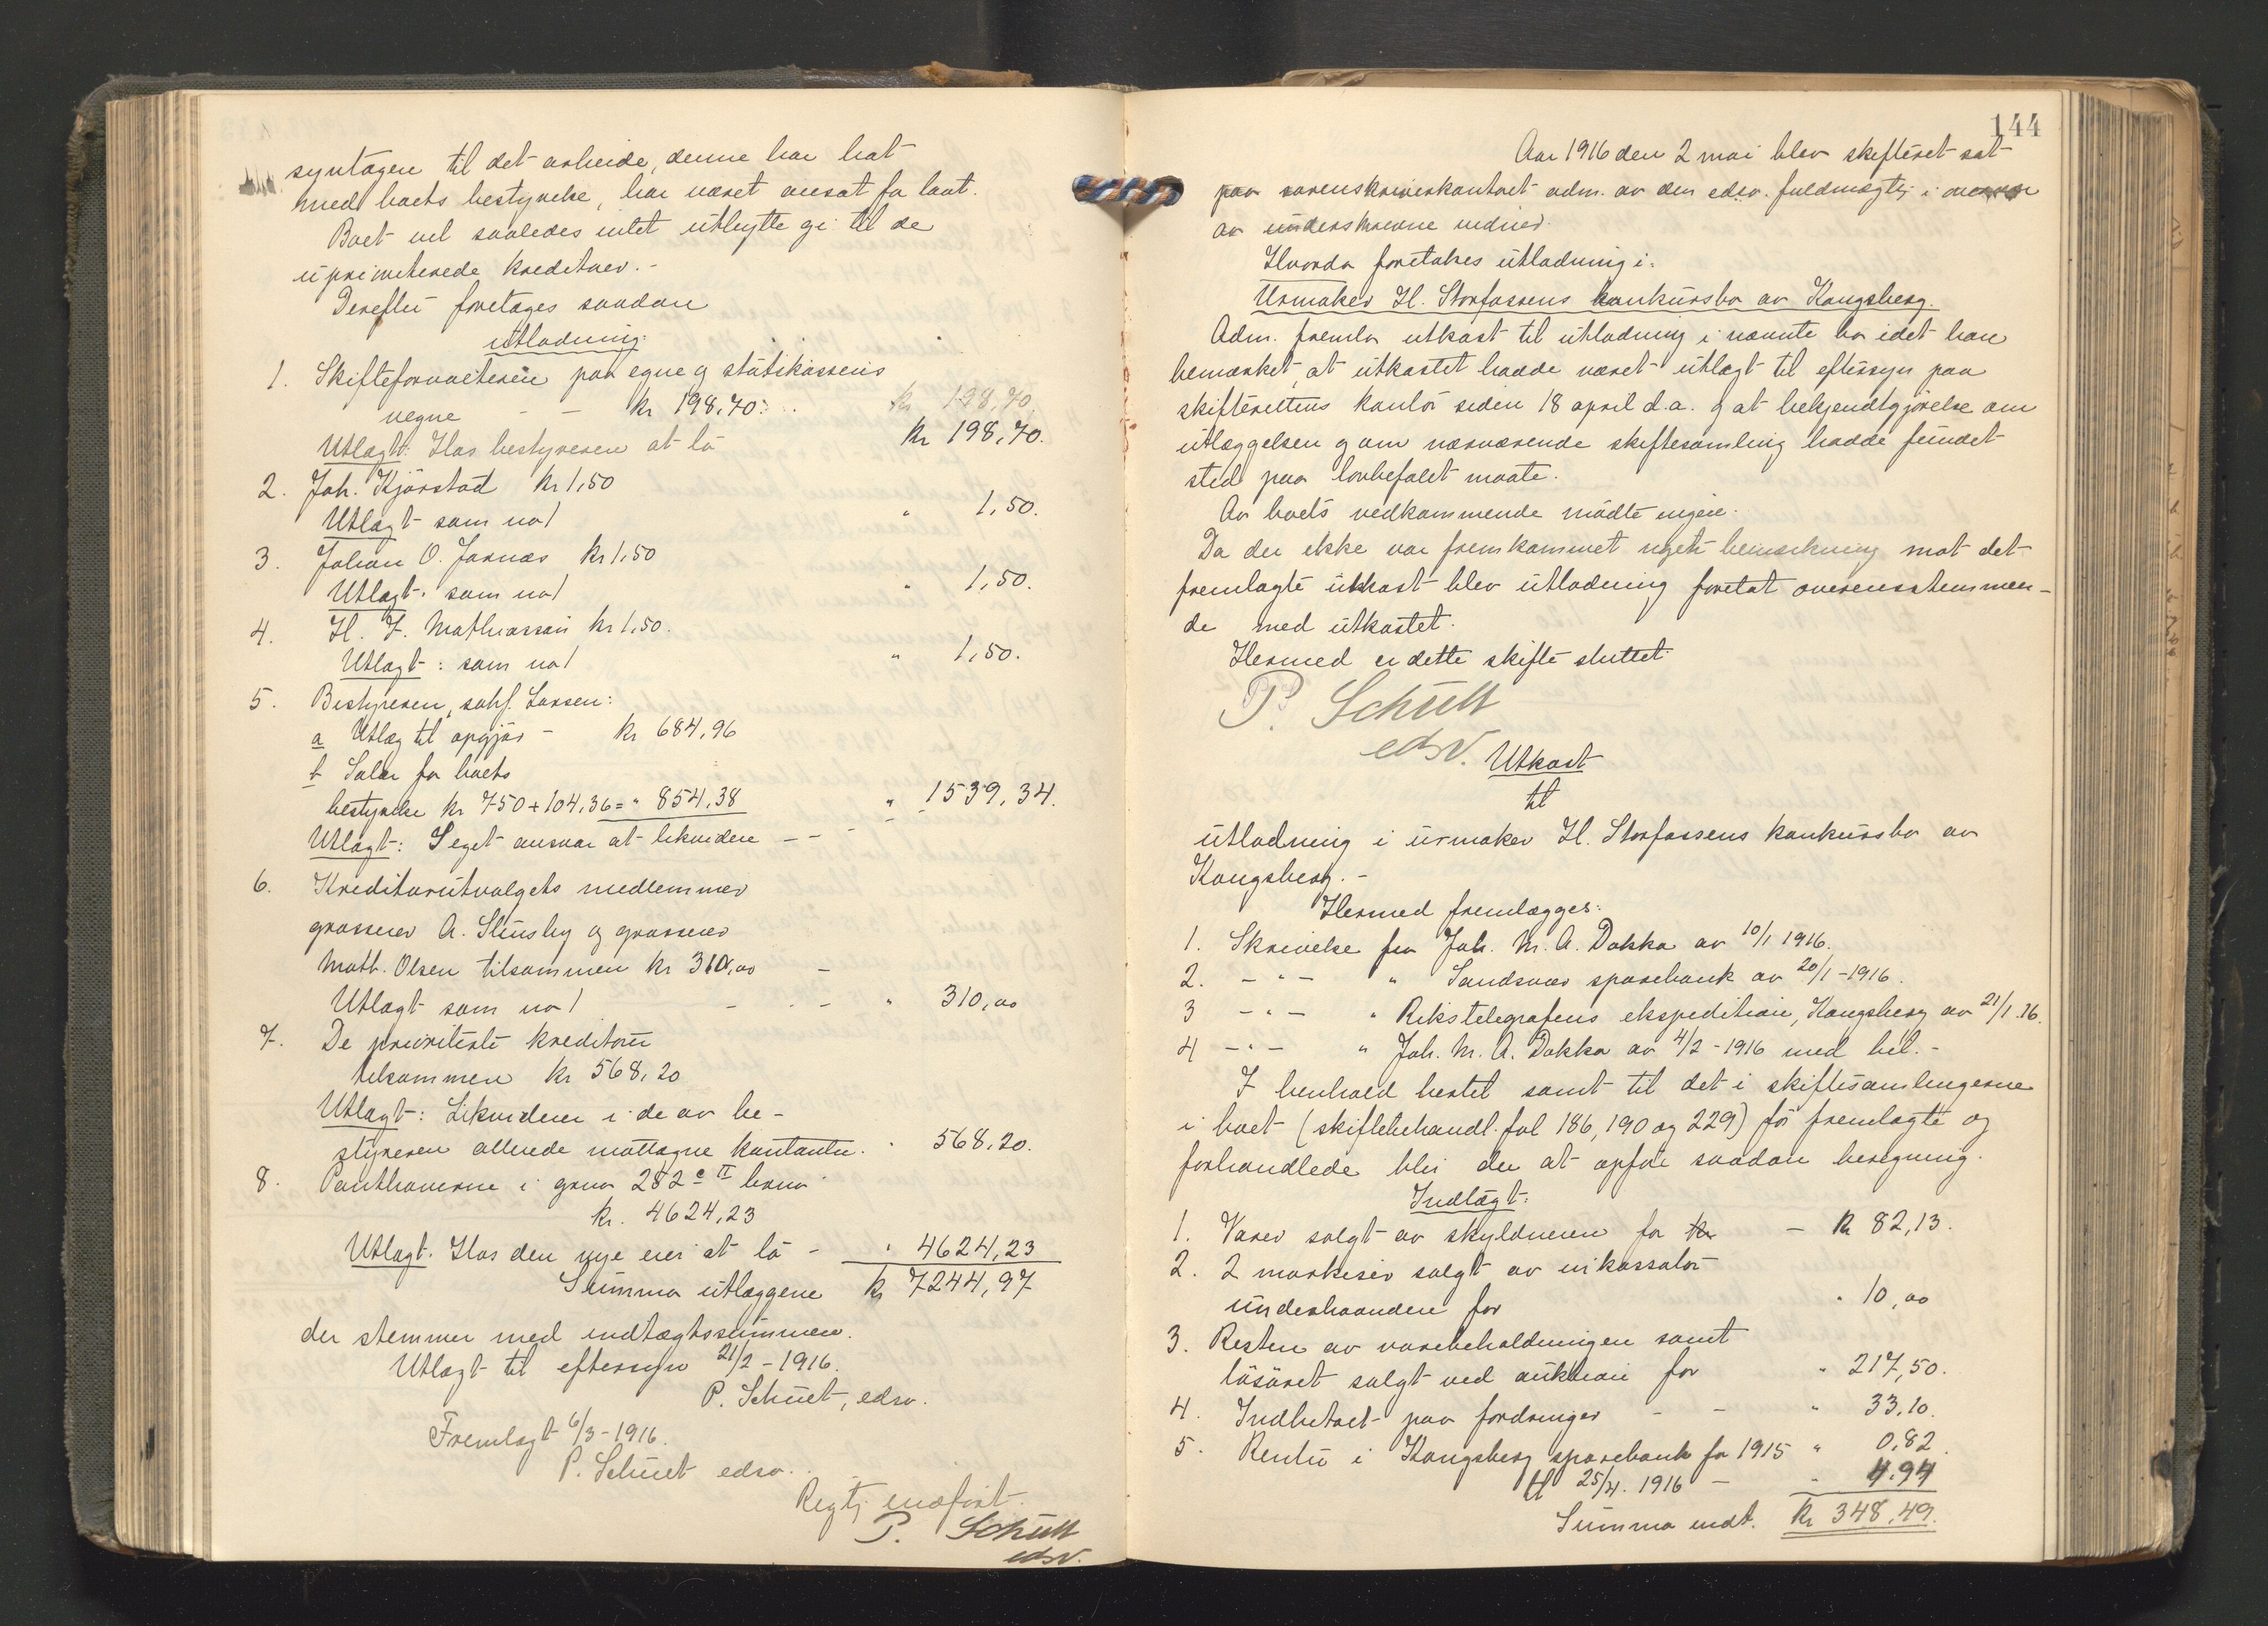 syntagen til det arbeide, denne har hat
med boets bestyrelse, har været ansat for lavt.
Boet vil saaledes intet utbytte gi til de
upriviterede kreditorer.-
Derefter foretages saadan
utlodning:
1. Skifteforvalteren paa egne og statskassens
vegne - - kr 198,70: kr 198,70
Utlagt: Hos bestyreren at lö kr 198,70.
2. Joh. Kjörstad kr 1,50
Utlagt som no 1 " 1,50.
3. Johan O. Jarnæs kr 1,50
Utlagt: som no 1 " 1,50.
4. H. F. Mathiassen kr 1,50.
Utlagt: som no 1 " 1,50.
5. Bestyreren, sakf. Larsen:
a Utlæg til opgjör - kr 684,96
b Salær for boets
bestyrelse kr 750+104,36= " 854,38 " 1539,34.
Utlagt: I eget ansvar at likvidere - - - -
6. Kreditorutvalgets medlemmer
grosserer A. Slensby og grosserer
Math. Olsen tilsammen kr 310,00 -
Utlagt som no 1 - - - " 310,00
7. De prioriterte kreditorer
tilsammen kr 568,20
Utlagt: Likvideres i de av be-
styreren allerede mottagne kontanter. " 568,20.
8. Panthaverne i grno 282 c II bano
kr. 4624,23
Utlagt. Hos den nye eier at lö - " 4624,23
Summa utlæggene kr 7244,97
der stemmer med indtægtssummen.
Utlagt til eftersyn 21/2 - 1916.
P. Schuet, edsv.
Fremlagt 6/3 - 1916.
P. Schuet edsv.
Rigtig indført.
P. Schutt
edsv.
144
Aar 1916 den 2 mai blev skifteret sat
paa sorenskriverkontoret adm. av den edsv. fuldmægtig i overvær
av underskrevne vidner.
Hvorda foretakes utlodning i:
Urmaker H. Storfossens konkursbo av Kongsberg.
Adm. fremla utkast til utlodning i nævnte bo idet han
bemærket, at utkastet hadde været utlagt til eftersyn paa
skifterettens kontor siden 18 april d.a. og at bekjendtgjörelse om
utlæggelsen og om nærværende skiftesamling hadde fundet
sted paa lovbefalet maate.
Av boets vedkommende mödte ingen.
Da der ikke var fremkommet noget bemerkning mot det
fremlagte utkast blev utlodning foretat overensstemmen-
de med utkastet.
Hermed er dette skifte sluttet.
P. Schutt
edsv.
Utkast
til
utlodning i urmaker H. Storfossens konkursbo av
Kongsberg.-
Hermed fremlægges:
1. Skrivelse fra Joh. M. A. Dokka av 10/1 1916.
2. - " - " Sandsvær sparebank av 20/1 - 1916.
3 - " - " Rikstelegrafens ekspedition, Kongsberg av 21/1.16.
4 - " - " Joh. M. A. Dokka av 4/2 - 1916 med bil.-
I henhold hertil samt til det i skiftesamlingerne
i boet (skiftebehandl. fol 186, 190 og 229) för fremlagte og
forhandlede blir der at opföre saadan beregning.
Indtægt:
1. Varer solgt av skyldneren for kr - kr 82,13.
2. 2 markiser solgt av inkassator
underhaanden for " 10,00
3. Resten av varebeholdningen samt
lösöret solgt ved auktion for " 217,50.
4. Indbetalt paa fordringer - - " 33,10.
5. Renter i Kongsberg sparebank for 1915 " 0,82.
til 25/4. 1916 - " 4.94
Summa indt. kr 348,49.